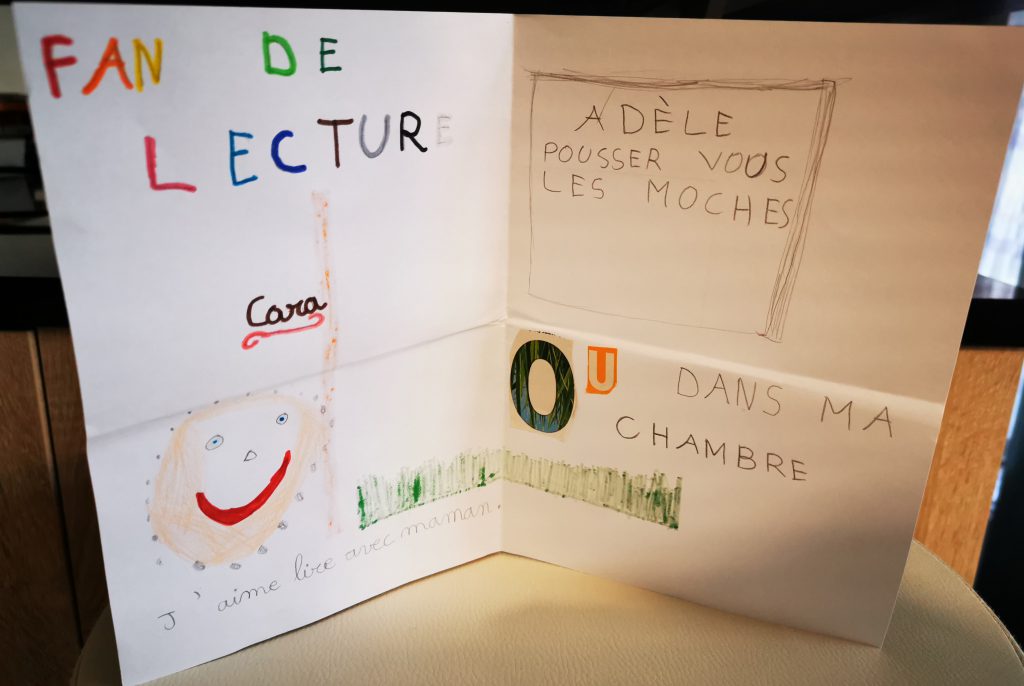 FAN DE
LECTURE
Cara
J'aime lire avec maman.
ADÈLE
POUSSER VOUS
LES MOCHES
OU DANS MA
CHAMBRE